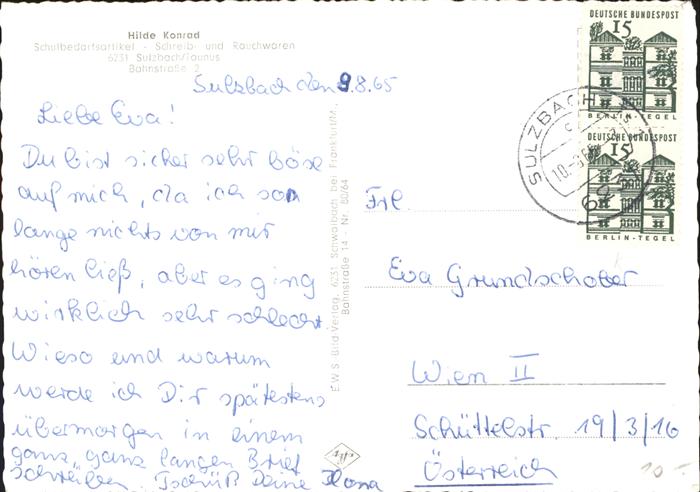 Hilde Konrad
Schulbedarfsartikel - Schreib- und Rauchwaren
6231 Sulzbach/Taunus
Bahnstraße 2
Sulzbach den 9.8.65
Liebe Eva!
Du bist sicher sehr böse
auf mich, da ich so
lange nichts von mir
hören ließ, aber es ging
wirklich sehr schlecht.
Wieso und warum
werde ich Dir spätestens
übermorgen in einem
ganz, ganz langen Brief
schreiben. Tschüß Deine Ilona
E.W.S. Bild-Verlag, 6231 Schwalbach bei Frankfurt/M.,
Bahnstraße 14 - Nr. 80/64
DEUTSCHE BUNDESPOST
15
BERLIN-TEGEL
DEUTSCHE BUNDESPOST
15
BERLIN-TEGEL
SULZBACH
Frl.
Eva Grundschober
Wien II
Schüttelstr. 19/3/16
Österreich
10.-